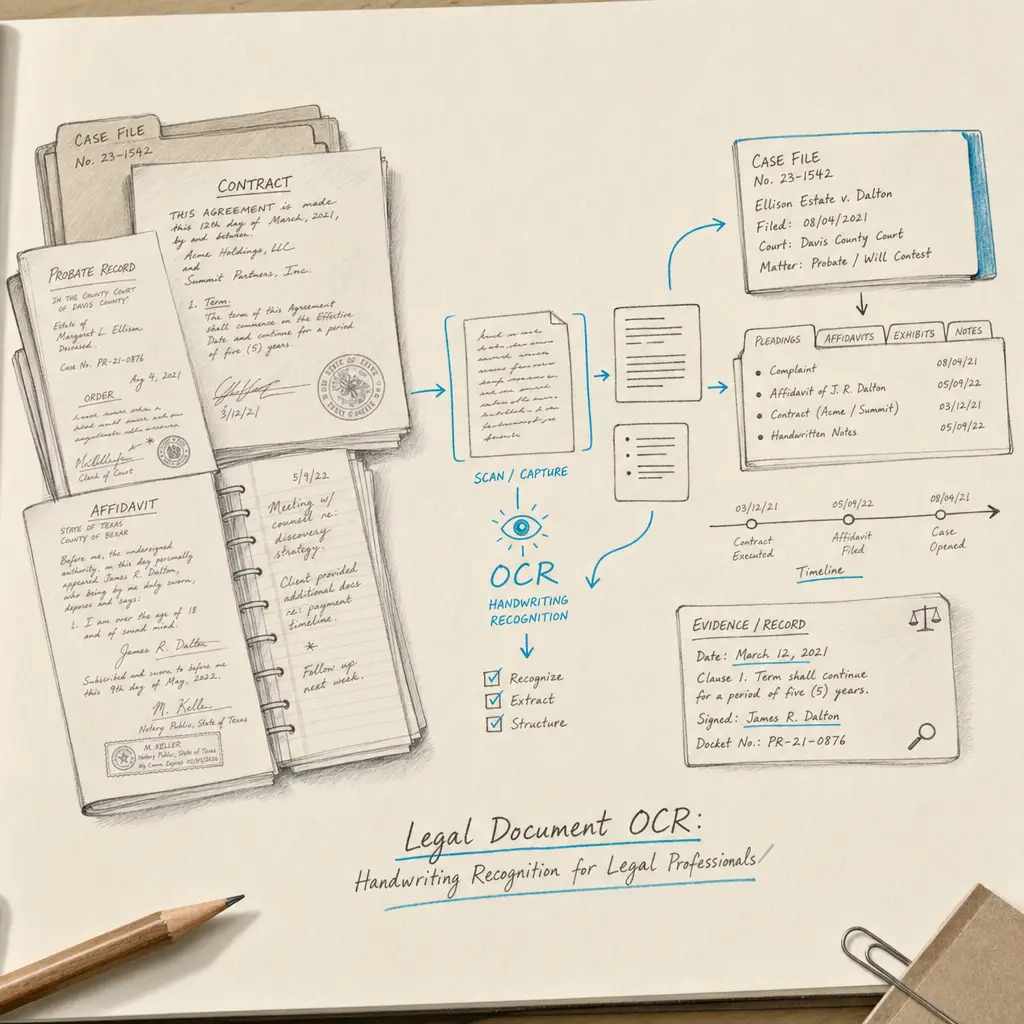 CASE FILE
No. 23-1542
CONTRACT
THIS AGREEMENT is made
this 12th day of March, 2021,
by and between
Acme Holdings, LLC
and
Summit Partners, Inc.
1. Term.
The term of this Agreement
shall commence on the Effective
Date and continue for a period
of five (5) years.
3/12/21
PROBATE RECORD
IN THE COUNTY COURT
OF DAVIS COUNTY
Estate of
Margaret L. Ellison
Deceased.
Case No. PR-21-0876
Aug 4, 2021
ORDER
Clerk of Court
AFFIDAVIT
STATE OF TEXAS
COUNTY OF BEXAR
Before me, the undersigned
authority, on this day personally
appeared James R. Dalton,
who being by me duly sworn,
deposes and says:
1. I am over the age of 18
and of sound mind.
James R. Dalton
Subscribed and sworn to before me
this 9th day of May, 2022.
M. Keller
Notary Public, State of Texas
M. KELLER
Notary Public, State of Texas
My Comm. Expires
5/9/22
Meeting w/
counsel re:
discovery
strategy.
Client provided
additional docs
re: payment
timeline.
*
Follow up
next week.
SCAN / CAPTURE
OCR
HANDWRITING
RECOGNITION
Recognize
Extract
Structure
CASE FILE
No. 23-1542
Ellison Estate v. Dalton
Filed: 08/04/2021
Court: Davis County Court
Matter: Probate / Will Contest
PLEADINGS AFFIDAVITS EXHIBITS NOTES
• Complaint 08/04/21
• Affidavit of J. R. Dalton 05/09/22
• Contract (Acme / Summit) 03/12/21
• Handwritten Notes 05/09/22
03/12/21 05/09/22 08/04/21
Contract Executed
Affidavit Filed
Case Opened
Timeline
EVIDENCE / RECORD
Date: March 12, 2021
Clause 1. Term shall continue
for a period of five (5) years.
Signed: James R. Dalton
Docket No.: PR-21-0876
Legal Document OCR:
Handwriting Recognition for Legal Professionals